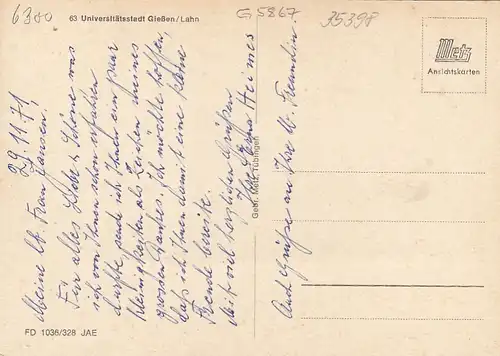 6300
63 Universitätsstadt Gießen/Lahn
G 5867
35398
Metz
Ansichtskarten
29.11.71
Meine lb. Frau Jansen.
Für alles Liebe & Schöne was
ich von Ihnen schon erfahren
durfte, sende ich Ihnen ein paar
Kleinigkeiten als Zeichen meines
grossen Dankes. Ich möchte hoffen,
das ich Ihnen damit eine kleine
Freude bereite.
Mit viel herzlichen Grüßen
Ihre Erna Heimes
Auch Grüße an Ihre lb. Freundin.
Gebr. Metz, Tübingen
FD 1036/328 JAE